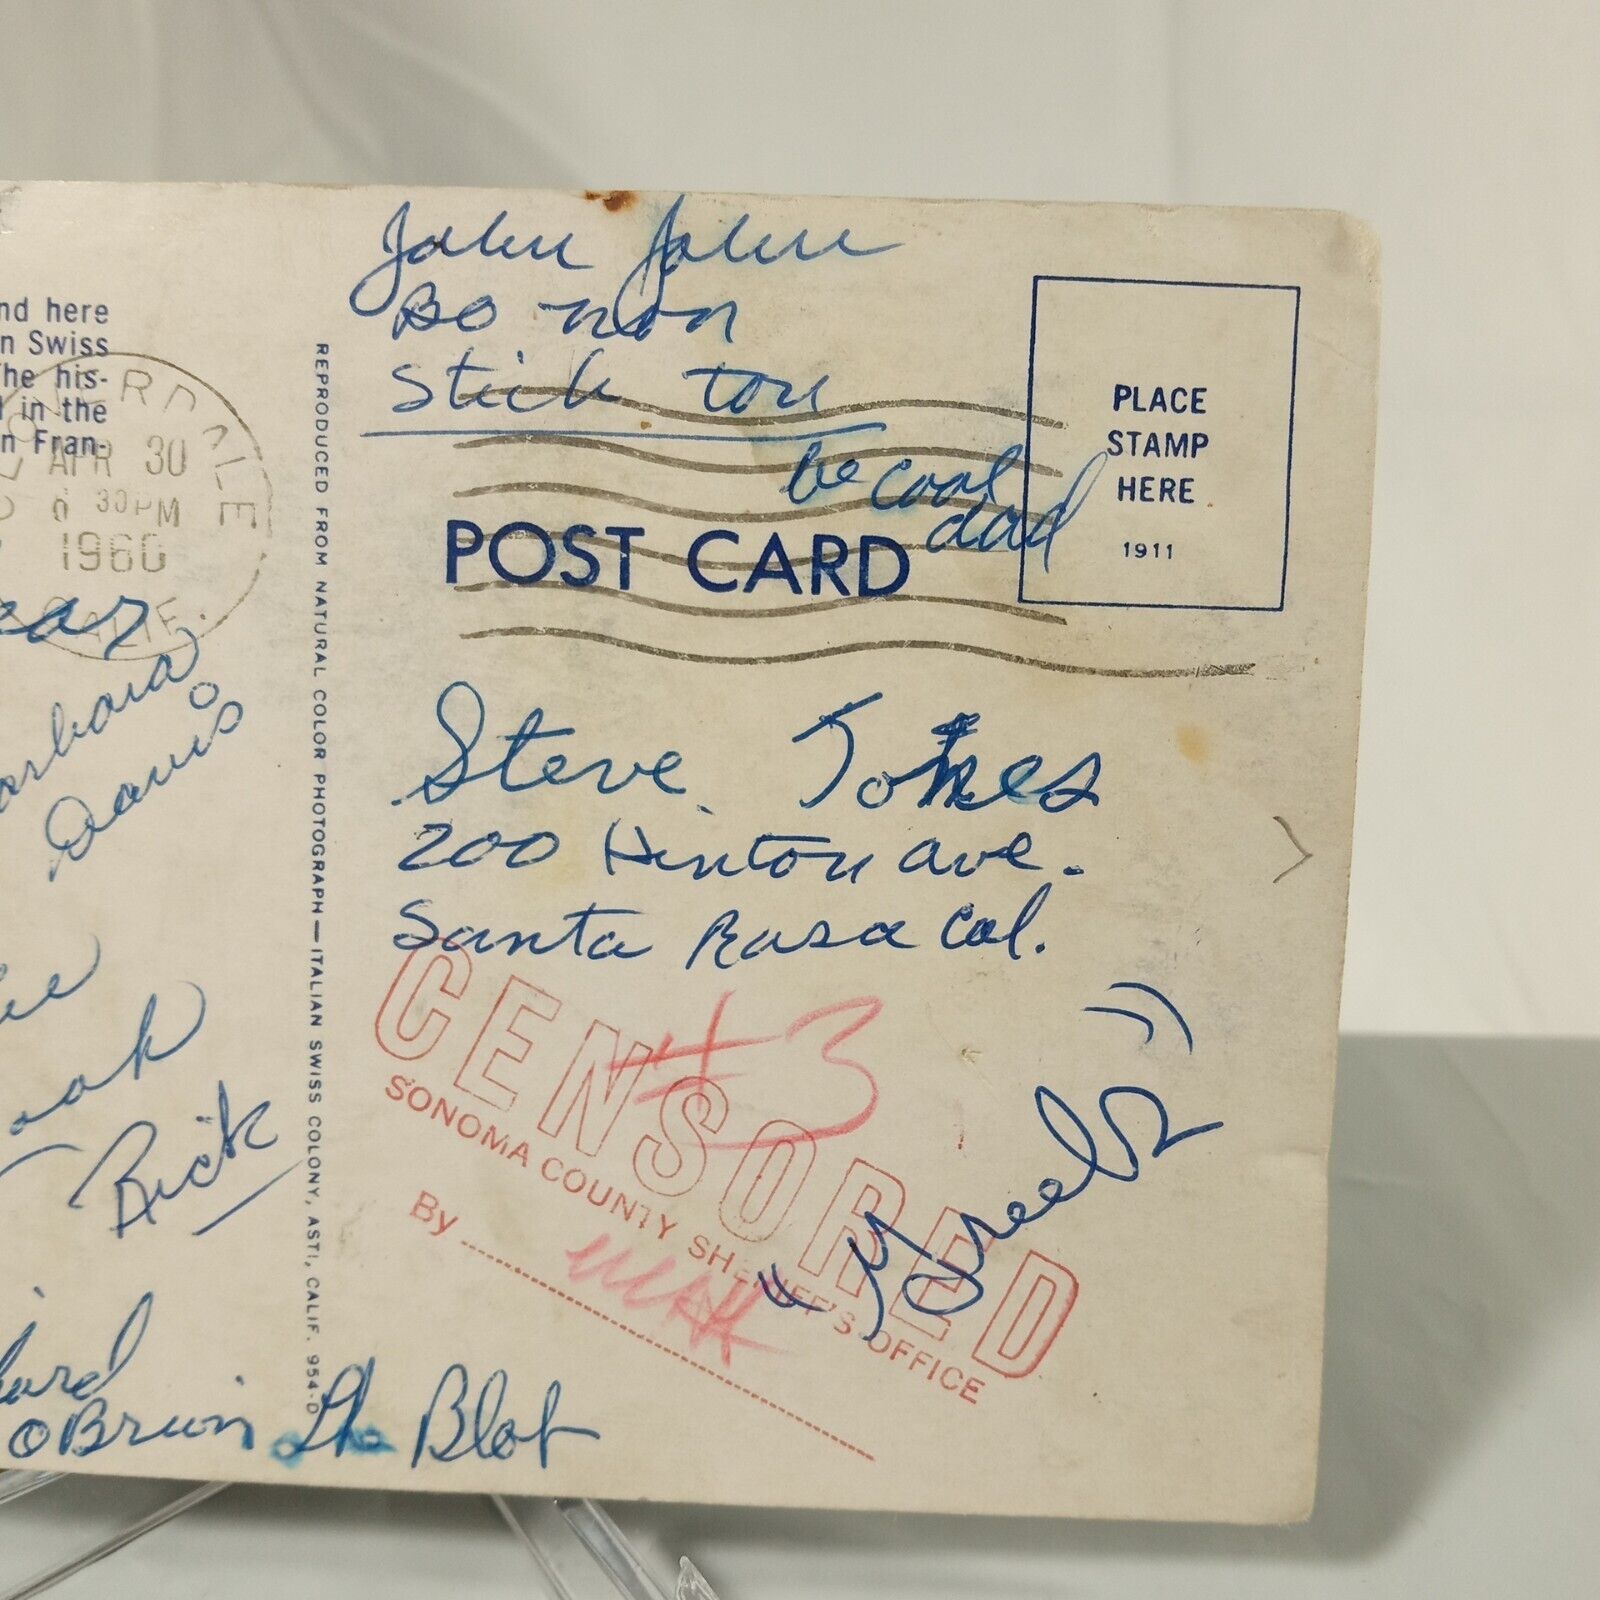 nd here
n Swiss
The his-
l in the
n Fran-
CLOVERDALE
APR 30
6 30PM
1960
CALIF.
Barbara
Davis
Rick
OBrien The Blob
REPRODUCED FROM NATURAL COLOR PHOTOGRAPH—ITALIAN SWISS COLONY, ASTI, CALIF. 954-D
John John
Bo non
Stick ton
be cool
dad
POST CARD
PLACE
STAMP
HERE
1911
Steve Jones
200 Hinton ave.
Santa Rosa Cal.
CENSORED
#3
SONOMA COUNTY SHERIFF'S OFFICE
By